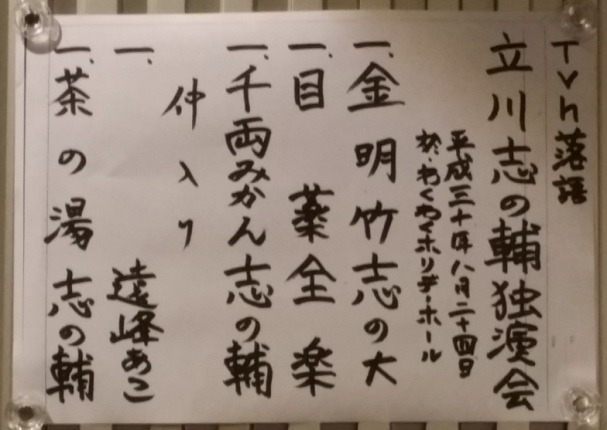 Tvh落語
立川志の輔独演会
平成三十年八月二十四日
於、わくわくホリデーホール
一、金明竹 志の大
一、目薬 全楽
一、千両みかん 志の輔
仲入り
一、 遠峰あこ
一、茶の湯 志の輔